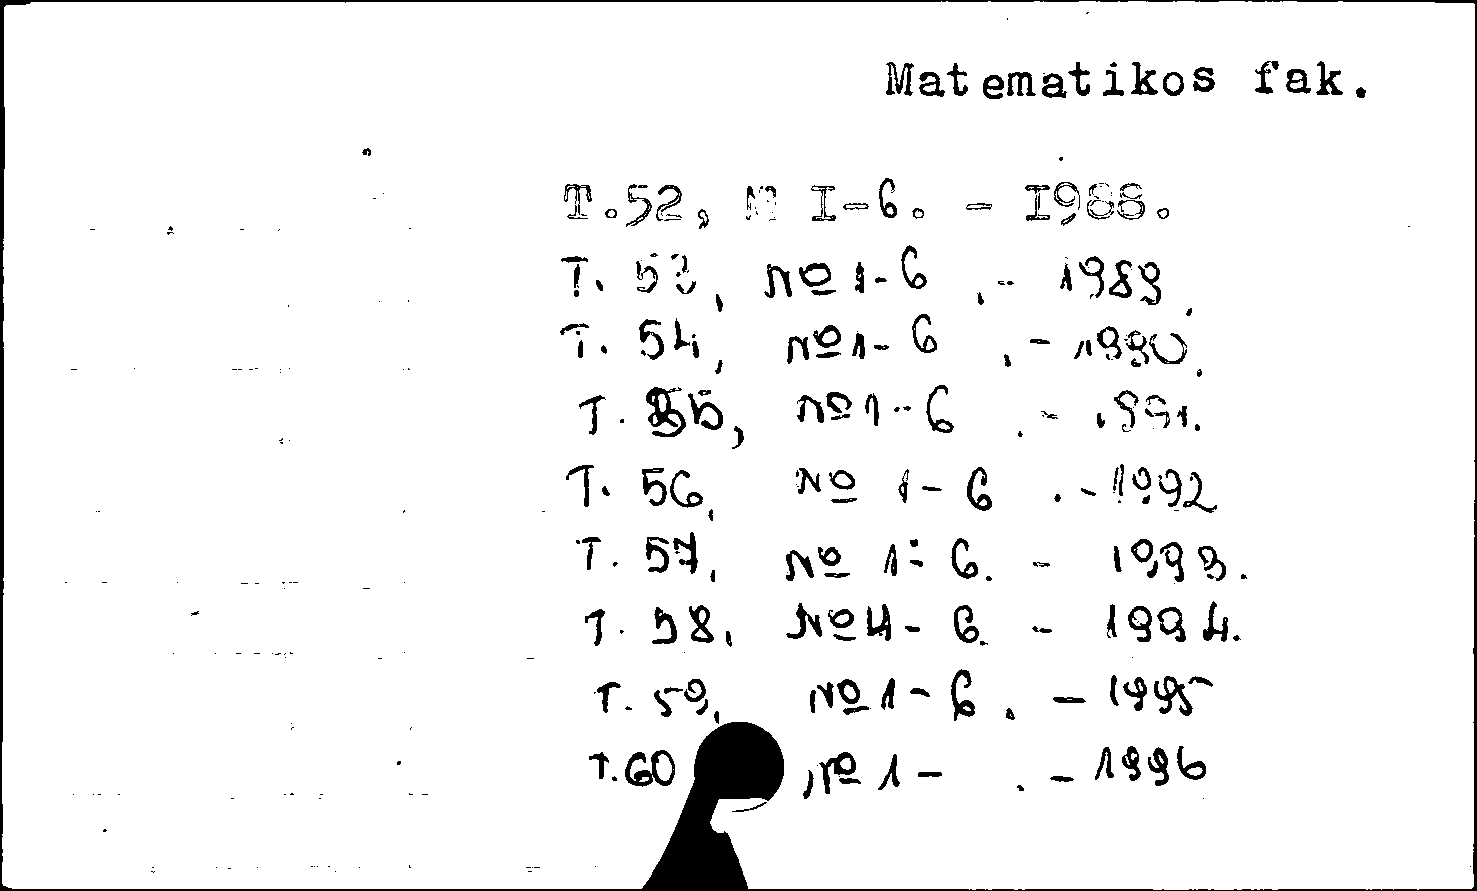 Matematikos fak.
T.52, № I-6. - I988.
T. 53, № 1-6 .- 1989.
T. 54, № 1-6 .- 1990.
T. 55, № 1-6 .- 1991.
T. 56, № 1-6 .- 1992
T. 57, № 1-6. - 1993.
T. 58, № 4-6. - 1994.
T. 59, № 1-6. - 1995
T.60 , № 1- . - 1996